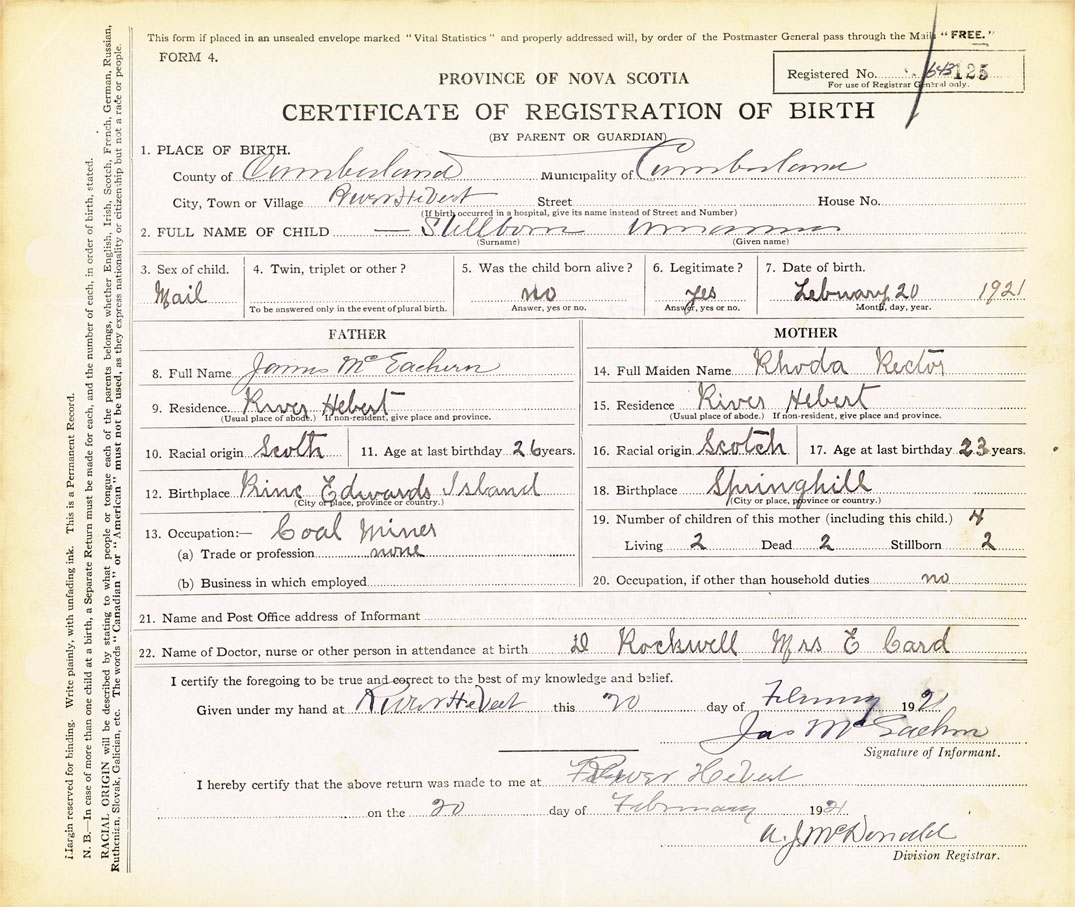 This form if placed in an unsealed envelope marked "Vital Statistics" and properly addressed will, by order of the Postmaster General pass through the Mails "FREE."
FORM 4.
Registered No. 643 125
For use of Registrar General only.
PROVINCE OF NOVA SCOTIA
CERTIFICATE OF REGISTRATION OF BIRTH
(BY PARENT OR GUARDIAN)
1. PLACE OF BIRTH.
County of Cumberland Municipality of Cumberland
City, Town or Village River Hebert Street House No.
(If birth occurred in a hospital, give its name instead of Street and Number)
2. FULL NAME OF CHILD — Stillborn
(Surname) (Given name)
3. Sex of child. 4. Twin, triplet or other? 5. Was the child born alive? 6. Legitimate? 7. Date of birth.
Mail no yes Februany 20 1921
To be answered only in the event of plural birth. Answer, yes or no. Answer, yes or no. Month, day, year.
FATHER
8. Full Name James McEachern
9. Residence River Hebert
(Usual place of abode.) If non-resident, give place and province.
10. Racial origin Scoth 11. Age at last birthday 26 years.
12. Birthplace Rinc Edwards Island
(City or place, province or country.)
13. Occupation:— Coal Miner
(a) Trade or profession none
(b) Business in which employed
MOTHER
14. Full Maiden Name Rhoda Rector
15. Residence River Hebert
(Usual place of abode.) If non-resident, give place and province.
16. Racial origin Scotch 17. Age at last birthday 23 years.
18. Birthplace Springhill
(City or place, province or country.)
19. Number of children of this mother (including this child.) 4
Living 2 Dead 2 Stillborn 2
20. Occupation, if other than household duties no
21. Name and Post Office address of Informant
22. Name of Doctor, nurse or other person in attendance at birth D Rockwell Mrs E Card
I certify the foregoing to be true and correct to the best of my knowledge and belief.
Given under my hand at River Hebert this 20 day of 1921
Jas McEachern
Signature of Informant.
I hereby certify that the above return was made to me at River Hebert
on the 20 day of February 1921
A. J. McDonald
Division Registrar.
Margin reserved for binding. Write plainly, with unfading ink. This is a Permanent Record.
N. B.—In case of more than one child at a birth, a Separate Return must be made for each, and the number of each, in order of birth, stated.
RACIAL ORIGIN will be described by stating to what people or tongue each of the parents belongs, whether English, Irish, Scotch, French, German, Russian,
Ruthenian, Slovak, Galician, etc. The words "Canadian" or "American" must not be used, as they express nationality or citizenship but not a race or people.